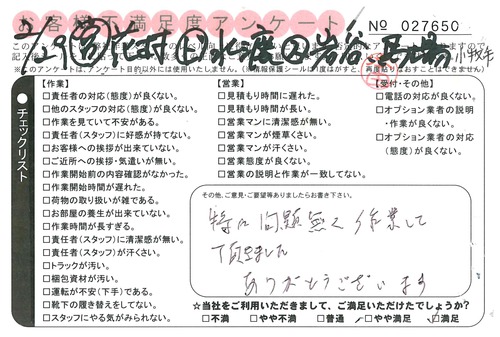 お客様不満足度アンケート
No 027650
7/29 (営)花村 (L)水渡 (D)岩谷、馬場
小牧午
※このアンケートは、アンケート目的以外には使用いたしません。(※情報保護シールは1度はがすと、再度貼りなおすことはできません)
チェックリスト
【作業】
□責任者の対応(態度)が良くない。
□他のスタッフの対応(態度)が良くない。
□作業を見ていて不安がある。
□責任者(スタッフ)に好感が持てない。
□お客様への挨拶が出来ていない。
□ご近所への挨拶・気遣いが無い。
□作業開始前の内容確認がなかった。
□作業開始時間が遅れた。
□荷物の取り扱いが雑である。
□お部屋の養生が出来ていない。
□作業時間が長すぎる。
□責任者(スタッフ)に清潔感が無い。
□責任者(スタッフ)が汗くさい。
□トラックが汚い。
□梱包資材が汚い。
□運転が不安(下手)である。
□靴下の履き替えをしてない。
□スタッフにやる気がみられない。
【営業】
□見積もり時間に遅れた。
□見積もり時間が長い。
□営業マンに清潔感が無い。
□営業マンが煙草くさい。
□営業マンが汗くさい。
□営業態度が良くない。
□営業の説明と作業が一致してない。
【受付・その他】
□電話の対応が良くない。
□オプション業者の説明
・作業が良くない。
□オプション業者の対応
(態度)が良くない。
その他、ご意見・ご要望等ありましたらお書き下さい。
特に問題無く作業して
頂きました
ありがとうございます
☆当社をご利用いただきまして、ご満足いただけたでしょうか?
□不満 □やや不満 □普通 □やや満足 ☑満足